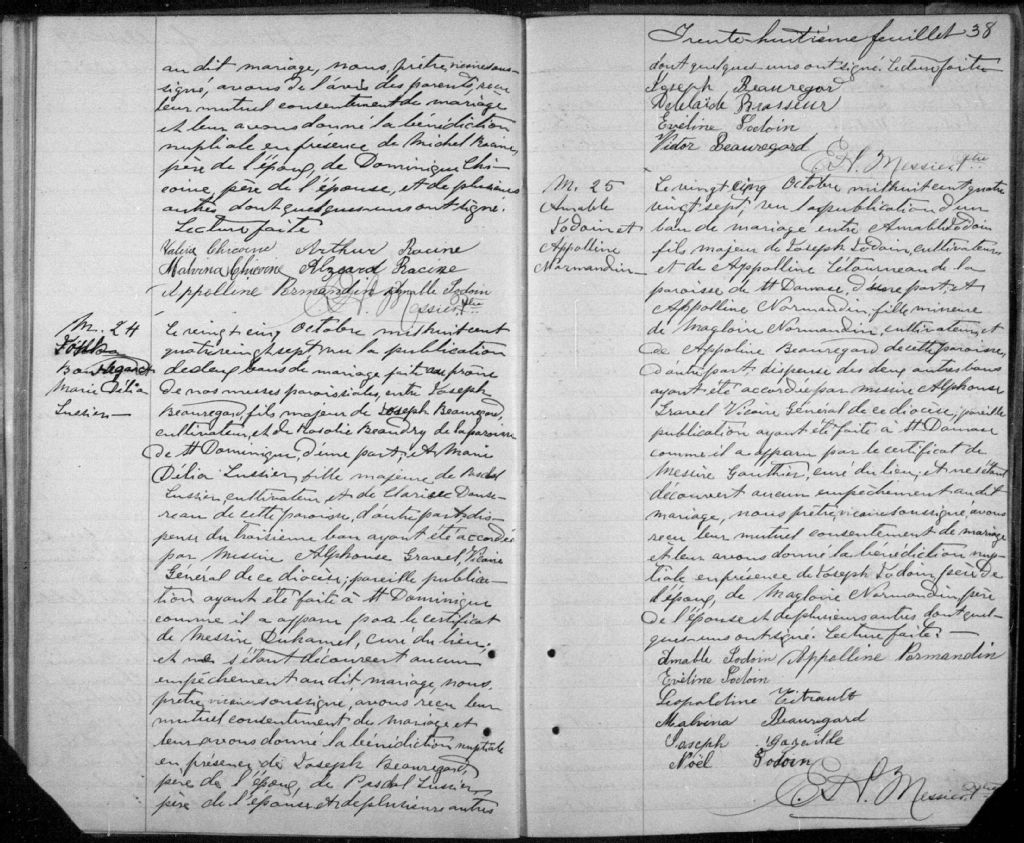 au dit mariage, nous, prêtre, vicaire sous-
signé, avons de l'avis des parents, reçu
leur mutuel consentement de mariage
et leur avons donné la bénédiction
nuptiale en présence de Michel Racine,
père de l'époux, de Dominique Chi-
coine, père de l'épouse, et de plusieurs
autres dont quelques-uns ont signé.
Lecture faite
Valéria Chicoine Arthur Racine
Malvina Chicoine Alzéard Racine
Appolline Normandin Amable Jodoin
Messier Ptre
M. 24
Joseph
Beauregard et
Marie Délia
Lussier
Le vingt cinq Octobre mil huit cent
quatre vingt sept, vu la publication
de deux bans de mariage fait au prône
de nos messes paroissiales, entre Joseph
Beauregard, fils majeur de Joseph Beauregard,
cultivateur, et de Rosalie Beaudry de la paroisse
de St Dominique, d'une part, et Marie
Délia Lussier, fille majeure de Paschal
Lussier, cultivateur et de Clarisse Danse-
reau de cette paroisse, d'autre part; dis-
pense du troisième ban ayant été accordée
par Messire Alphonse Gravel, Vicaire
Général de ce diocèse; pareille publica-
tion ayant été faite à St Dominique
comme il a apparu par le certificat
de Messire Duhamel, curé du lieu;
et ne s'étant découvert aucun
empêchement au dit mariage, nous,
prêtre, vicaire soussigné, avons reçu leur
mutuel consentement de mariage et
leur avons donné la bénédiction nuptiale
en présence de Joseph Beauregard,
père de l'époux, de Paschal Lussier,
père de l'épouse et de plusieurs autres
Trente-huitième feuillet 38
dont quelques-uns ont signé. Lecture faite
Joseph Beauregard
Adelaide Brasseur
Eveline Jodoin
Victor Beauregard
E. H. Messier, Ptre
M. 25
Amable
Jodoin et
Appolline
Normandin
Le vingt cinq Octobre mil huit cent quatre
vingt sept, vu la publication d'un
ban de mariage entre Amable Jodoin
fils majeur de Joseph Jodoin, cultivateur
et de Appolline Létourneau de la
paroisse de St Damase, d'une part et
Appolline Normandin, fille mineure
de Magloire Normandin, cultivateur, et
de Appoline Beauregard de cette paroisse,
d'autre part dispense des deux autres bans
ayant été accordée par messire Alphonse
Gravel Vicaire Général de ce diocèse; pareille
publication ayant été faite à St Damase
comme il a apparu par le certificat de
Messire Gauthier, curé du lieu; et ne s'étant
découvert aucun empêchement au dit
mariage, nous prêtre, vicaire soussigné, avons
reçu leur mutuel consentement de mariage
et leur avons donné la bénédiction nup-
tiale en présence de Joseph Jodoin, père de
l'époux, de Magloire Normandin, père
de l'épouse et de plusieurs autres dont quel-
ques-uns ont signé. Lecture faite
Amable Jodoin Appolline Normandin
Eveline Jodoin
Leopoldine Tétrault
Malvina Beauregard
Joseph
Noël Jodoin
E. H. Messier, Ptre